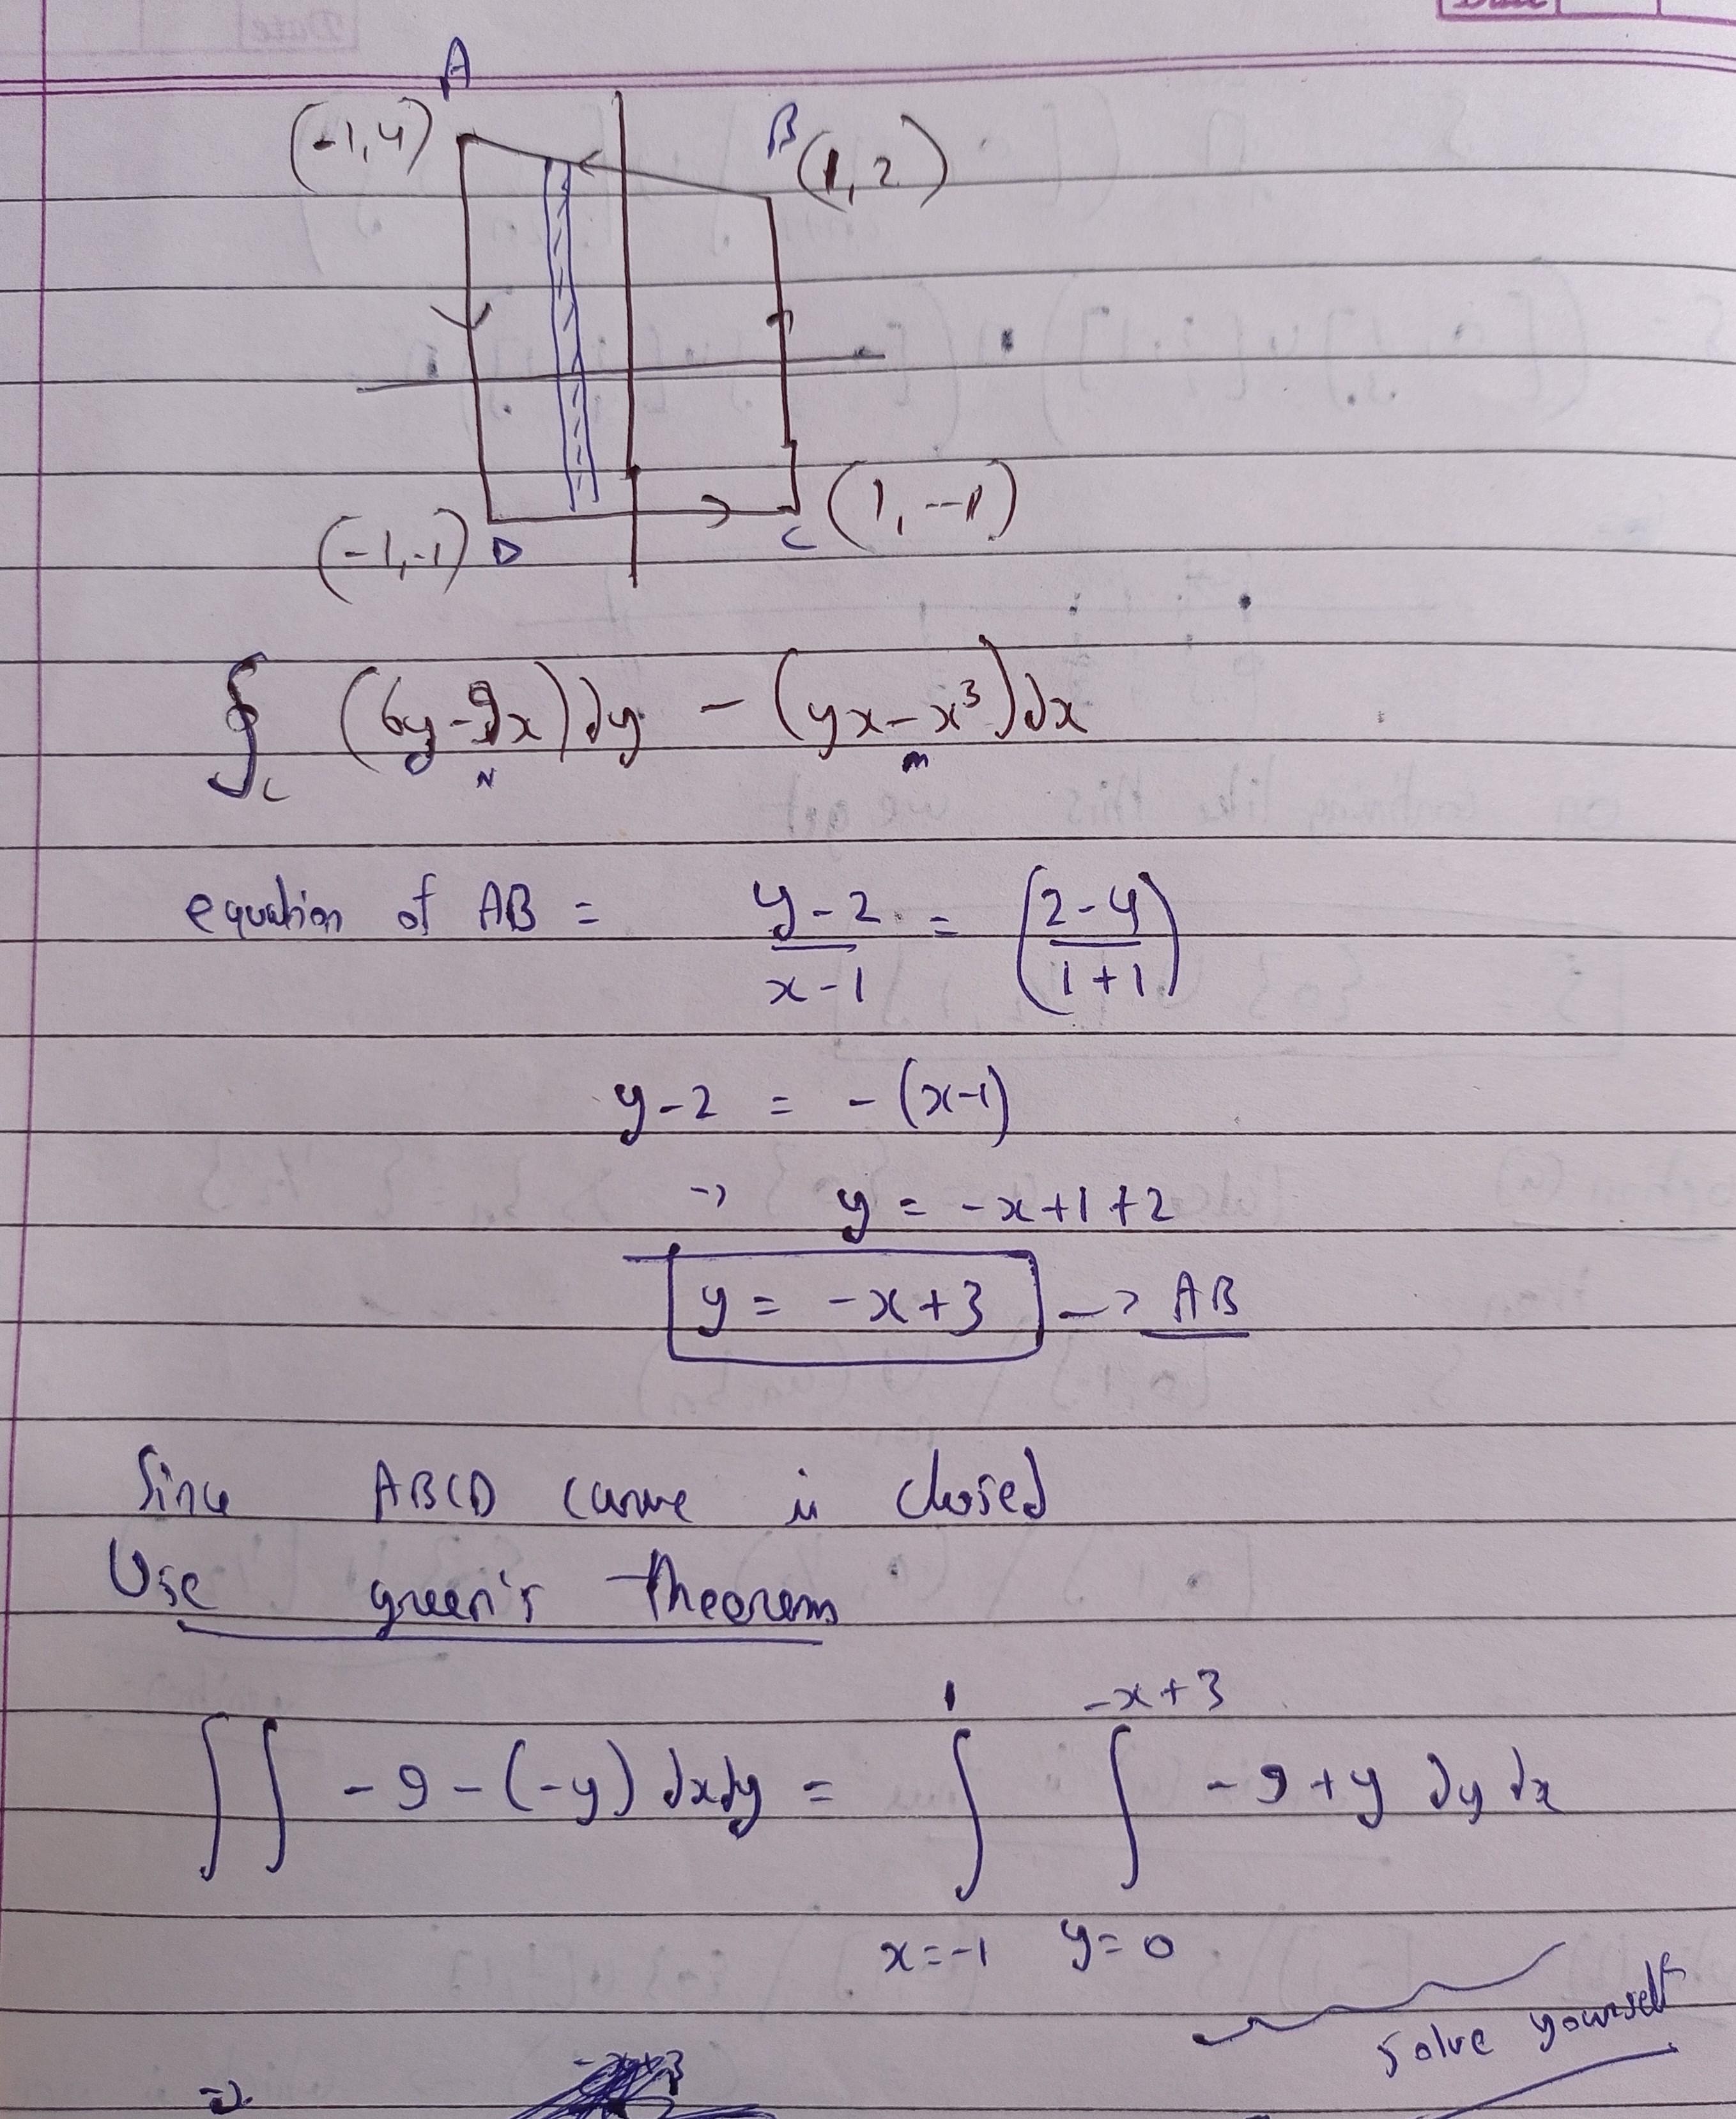 Date
A
(-1,4)
B (1,2)
(-1,-1) D
C (1,-1)
∮c (6y-9x)dy - (yx-x³)dx
N m
equation of AB = y-2/x-1 = (2-4/1+1)
y-2 = -(x-1)
→ y = -x+1+2
y = -x+3 → AB
Since ABCD curve is closed
Use green's theorem
∫∫ -9-(-y) dxdy = ∫x=-1^1 ∫y=0^-x+3 -9+y dy dx
solve yourself
⇒